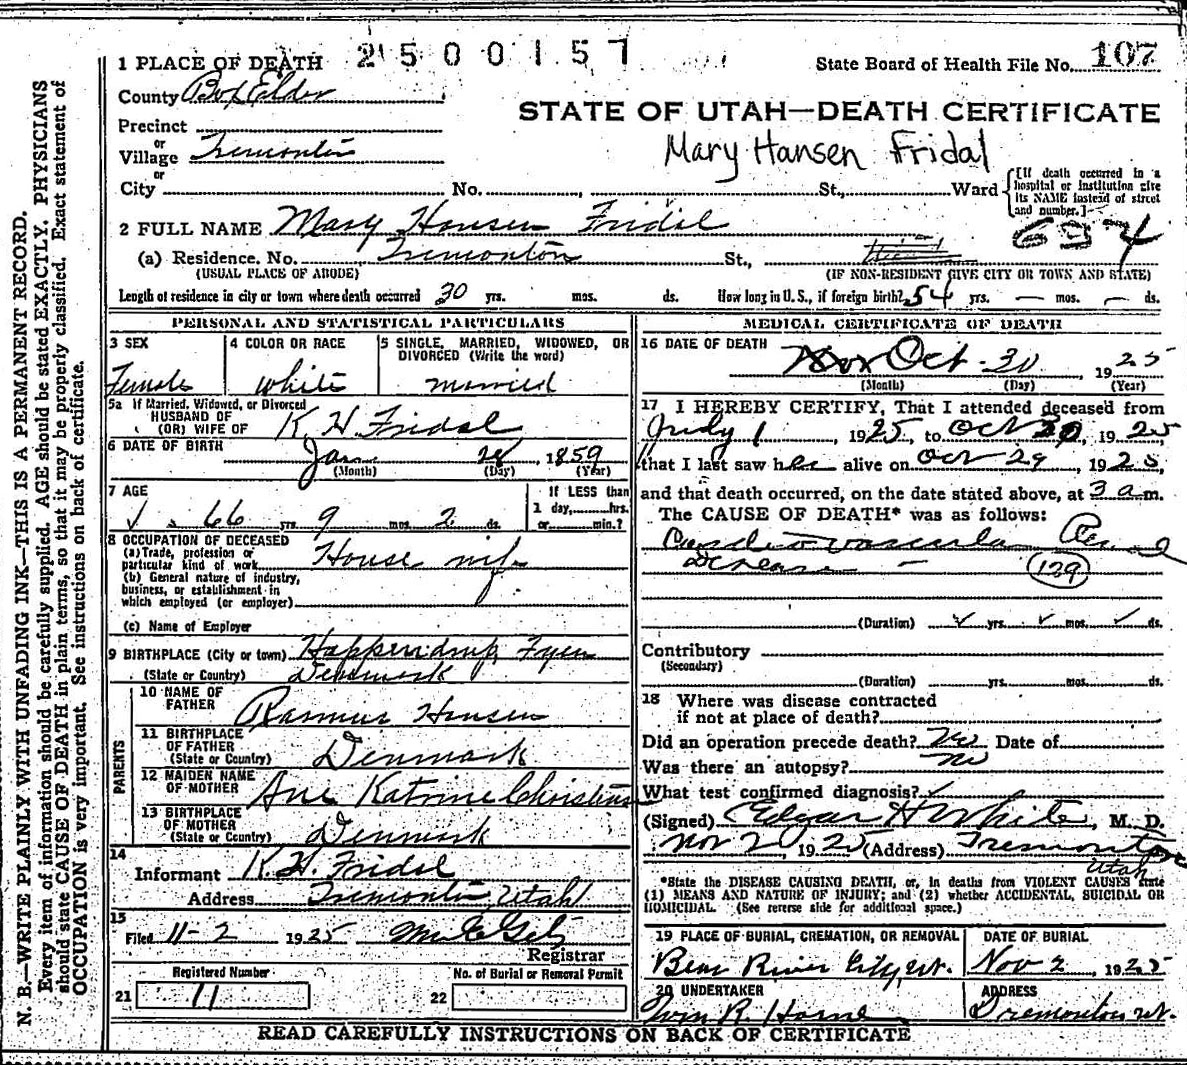 2500157
1 PLACE OF DEATH
State Board of Health File No. 107
County Box Elder
STATE OF UTAH—DEATH CERTIFICATE
Precinct
or
Village Tremonton
Mary Hansen Fridal
or
City No. , St., Ward
[If death occurred in a hospital or institution give its NAME instead of street and number.]
2 FULL NAME Mary Hansen Fridal
654
(a) Residence. No. Tremonton St.,
(USUAL PLACE OF ABODE) (IF NON-RESIDENT GIVE CITY OR TOWN AND STATE)
Length of residence in city or town where death occurred 30 yrs. mos. ds. How long in U.S., if foreign birth? 54 yrs. — mos. — ds.
PERSONAL AND STATISTICAL PARTICULARS
3 SEX
Female
4 COLOR OR RACE
White
5 SINGLE, MARRIED, WIDOWED, OR DIVORCED (Write the word)
married
5a If Married, Widowed, or Divorced
HUSBAND OF
(OR) WIFE OF K. H. Fridal
6 DATE OF BIRTH
Jan 28, 1859
(Month) (Day) (Year)
7 AGE
66 yrs. 9 mos. 2 ds.
If LESS than
1 day, hrs.
or min.?
8 OCCUPATION OF DECEASED
(a) Trade, profession or
particular kind of work House wife
(b) General nature of industry,
business, or establishment in
which employed (or employer)
(c) Name of Employer
9 BIRTHPLACE (City or town) Fyen
(State or Country) Denmark
PARENTS
10 NAME OF
FATHER Rasmus Hansen
11 BIRTHPLACE
OF FATHER
(State or Country) Denmark
12 MAIDEN NAME
OF MOTHER Ane Katrine Christensen
13 BIRTHPLACE
OF MOTHER
(State or Country) Denmark
14
Informant K. H. Fridal
Address Tremonton, Utah
15
Filed 11-2 1925
Registrar
Registered Number
21 11
No. of Burial or Removal Permit
22
MEDICAL CERTIFICATE OF DEATH
16 DATE OF DEATH
Nov Oct. 30, 1925
(Month) (Day) (Year)
17 I HEREBY CERTIFY, That I attended deceased from
July 1, 1925, to Oct 30, 1925
that I last saw her alive on Oct 29, 1925,
and that death occurred, on the date stated above, at 3 a m.
The CAUSE OF DEATH* was as follows:
Cardio vascular Renal
Disease — 129
(Duration) yrs. mos. ds.
Contributory
(Secondary)
(Duration) yrs. mos. ds.
18 Where was disease contracted
if not at place of death?
Did an operation precede death? No Date of
Was there an autopsy? no
What test confirmed diagnosis?
(Signed) Edgar H White, M. D.
Nov 2, 1925 (Address) Tremonton
Utah
*State the DISEASE CAUSING DEATH, or, in deaths from VIOLENT CAUSES state
(1) MEANS AND NATURE OF INJURY; and (2) whether ACCIDENTAL, SUICIDAL OR
HOMICIDAL. (See reverse side for additional space.)
19 PLACE OF BURIAL, CREMATION, OR REMOVAL
Bear River City, Ut.
DATE OF BURIAL
Nov 2, 1925
20 UNDERTAKER
Wm R. Horne
ADDRESS
Tremonton Ut.
READ CAREFULLY INSTRUCTIONS ON BACK OF CERTIFICATE
N. B.—WRITE PLAINLY WITH UNFADING INK—THIS IS A PERMANENT RECORD.
Every item of information should be carefully supplied. AGE should be stated EXACTLY. PHYSICIANS
should state CAUSE OF DEATH in plain terms, so that it may be properly classified. Exact statement of
OCCUPATION is very important. See instructions on back of certificate.